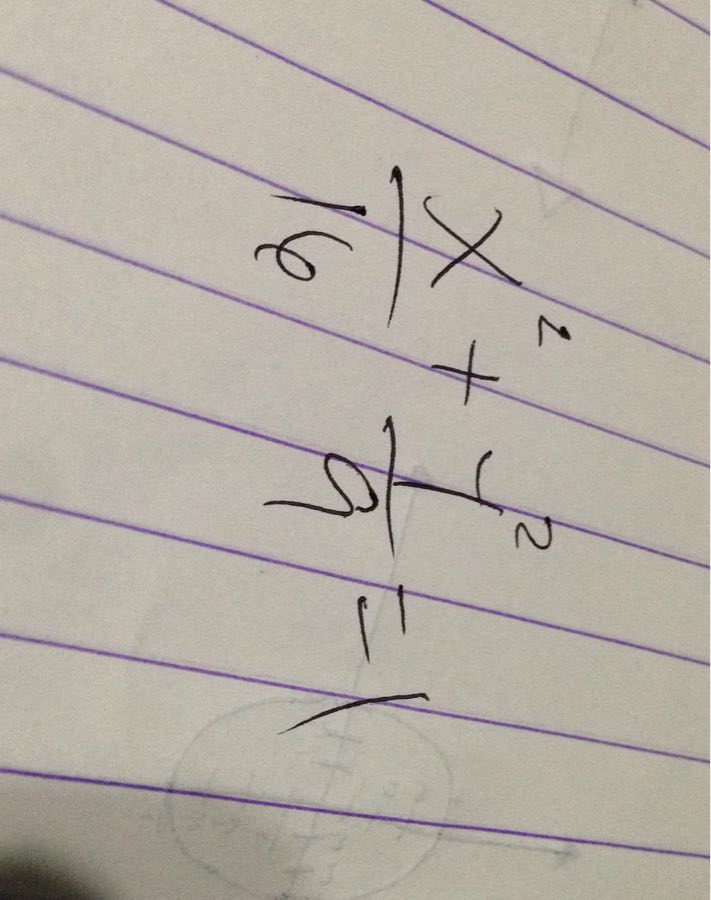 x²/16 + y²/9 = 1